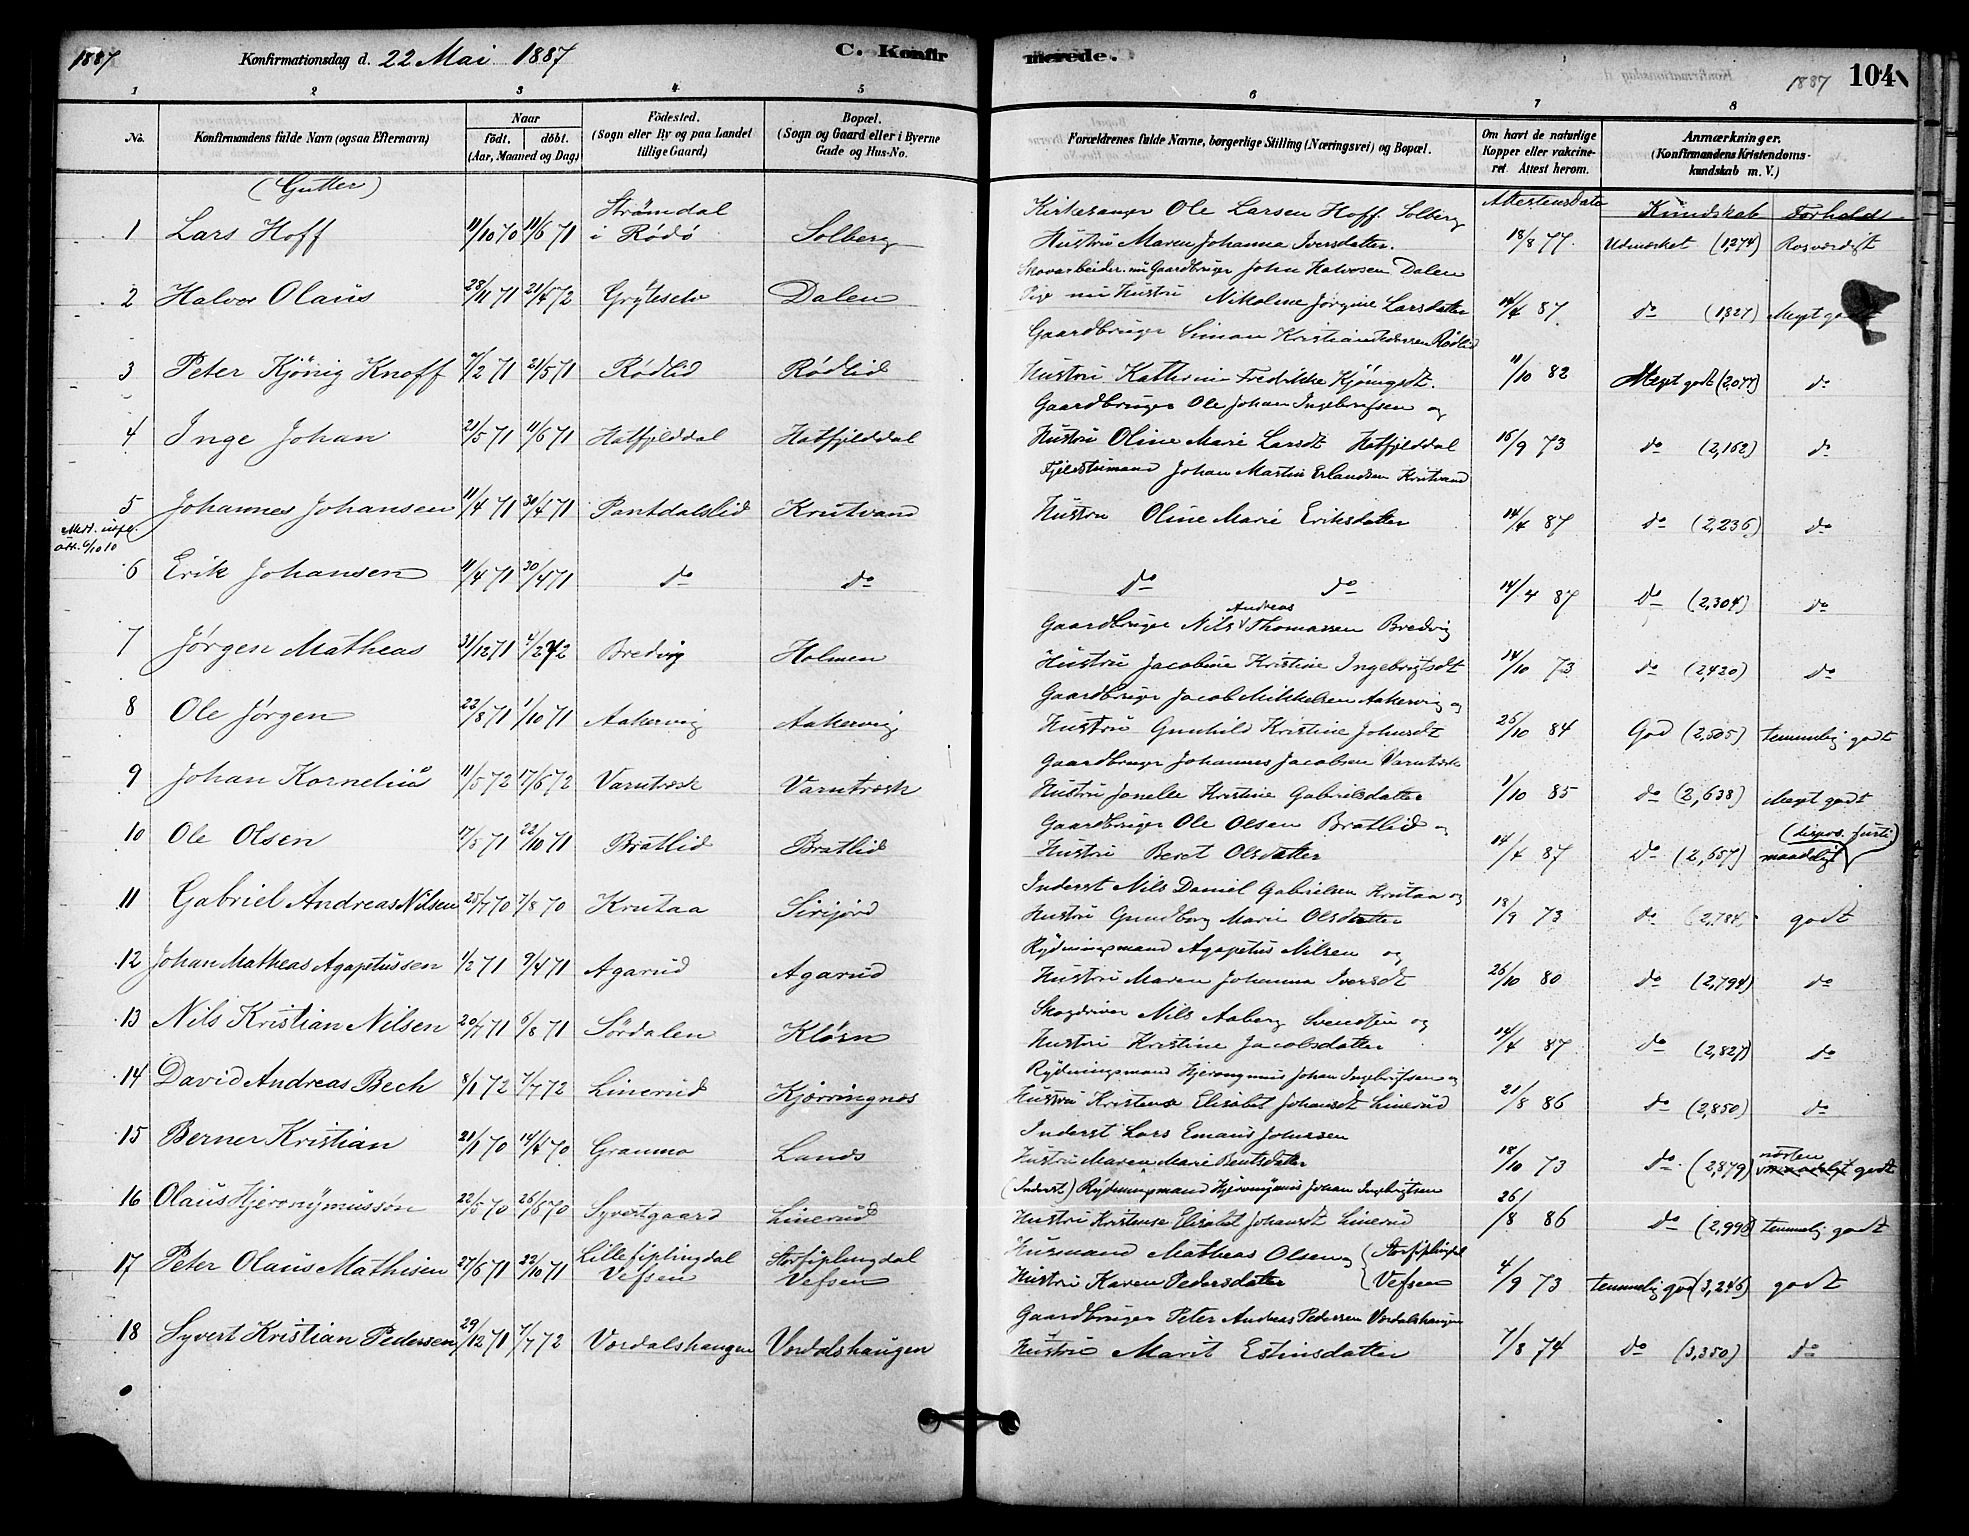 1887 Konfirmationsdag d. 22 Mai 1887 C. Konfirmerede. 1887 104
1 2 3 4 5 6 7 8
No. Konfirmandens fulde Navn (ogsaa Efternavn) Naar födt. döbt. (Aar, Maaned og Dag) Födested. (Sogn eller By og paa Landet tillige Gaard) Bopæl. (Sogn og Gaard eller i Byerne Gade og Hus-No. Forældrenes fulde Navne, borgerlige Stilling (Næringsvei) og Bopæl. Om havt de naturlige Kopper eller vakcineret. Attest herom. Anmærkninger. (Konfirmandens Kristendomskundskab m. V.)
(Gutter) Attestens dato Kundskab Forhold
1 Lars Hoff 11/10 70 11/6 71 Strömdal i Rödö Solberg Kirkesanger Ole Larsen Hoff Solberg
Hustru Maren Johanna Iversdatter. 18/8 77. Udmærket (1,274) Rosværdigt
2 Halvor Olaus 28/11 71 21/4 72 Grytselv Dalen Skovarbeider nu Gaardbruger John Halvorsen Dalen
Pige nu Hustru Nikoline Jørgine Larsdatter 14/4 87 do (1,827) Meget godt
3 Peter Kjönig Knoff 7/2 71 21/5 71 Rödlid Rödlid Gaardbruger Simon Kristian Pedersen Rödlid
Hustru Katherine Fredrikke Kjönigsdt. 11/10 82 Meget godt (2,077) do
4 Inge Johan 21/5 71 11/6 71 Hatfjelddal Hatfjelddal Gaardbruger Ole Johan Ingebrigtsen og
Hustru Oline Marie Larsdt Hatfjelddal 16/9 73 do (2,162) do
5 Johannes Johansen 11/4 71 30/4 71 Pantdalslid Krutvand Fjeldstumand Johan Martin Erlandsen Krutvand
Hustru Oline Marie Eriksdatter 14/4 87 do (2,236) do
att. 6/10 10
6 Erik Johansen 11/4 71 30/4 71 do do do do 14/4 87 do (2,304) do
7 Jørgen Matheas 31/12 71 4/2 72 Bredvig Holmen Gaardbruger Nils Andreas Thomassen Bredvig
Hustru Jacobine Kristine Ingebrigtsdt 14/10 73 do (2,420) do
8 Ole Jørgen 23/8 71 1/10 71 Aakervig Aakervig Gaardbruger Jacob Mikkelsen Aakervig og
Hustru Gunhild Kristine Johnsdt 25/10 84 God (2,505) temmelig godt
9 Johan Kornelius 11/5 72 17/6 72 Varntræsk Varntræsk Gaardbruger Johannes Jacobsen Varntræsk
Hustru Jonelle Kristine Gabrielsdatter 1/10 85 do (2,638) Meget godt
10 Ole Olsen 17/5 71 22/10 71 Bratlid Bratlid Gaardbruger Ole Olsen Bratlid og
Hustru Beret Olsdatter 14/4 87 do (2,657) maadeligt
11 Gabriel Andreas Nilsen 25/7 70 7/8 70 Krutaa Sirijord Inderst Nils Daniel Gabrielsen Krutaa og
Hustru Gundborg Marie Olsdatter 18/9 73 do (2,784) godt
12 Johan Matheas Agaptussen 1/2 71 9/4 71 Agarud Agarud Rydningsmand Agapetus Nilsen og
Hustru Maren Johanna Iversdt 26/10 80 do (2,794) do
13 Nils Kristian Nilsen 20/7 71 6/8 71 Sördalen Kløsn Skogdriver Nils Aaberg Svendsen og
Hustru Kristine Jacobsdatter 14/4 87 do (2,827) do
14 David Andreas Bech 8/1 72 7/7 72 Linerud Kjørringnes Rydningsmand Hjeronymus Johan Ingebrigtsen og
Hustru Kristense Elisabet Johansdt Linerud 21/8 86 do (2,850) do
15 Berner Kristian 21/1 70 14/4 70 Granmo Lands Inderst Lars Emaus Johnsen
Hustru Maren Marie Bentsdatter 18/10 73 do (2,879) næsten godt
16 Olaus Hjeronymussøn 22/5 70 26/6 70 Syvertgaard Linerud (Inderst) Rydningsmand Hjeronymus Johan Ingebrigtsen
Hustru Kristense Elisabet Johansdt Linerud 26/8 86 do (2,998) temmelig godt
17 Peter Olaus Mathisen 27/6 71 22/10 71 Lillefiplingdal Vefsen Storfiplingdal Vefsen Husmand Matheas Olsen og Storfiplingdal
Hustru Karen Pedersdatter Vefsen 4/9 73 temmelig god (3,246) godt
18 Syvert Kristian Pedersen 29/12 71 7/7 72 Vordalshaugen Vordalshaugen Gaardbruger Peter Andreas Pedersen Vordalshaugen
Hustru Marit Estinsdatter 7/8 74 do (3,350) do